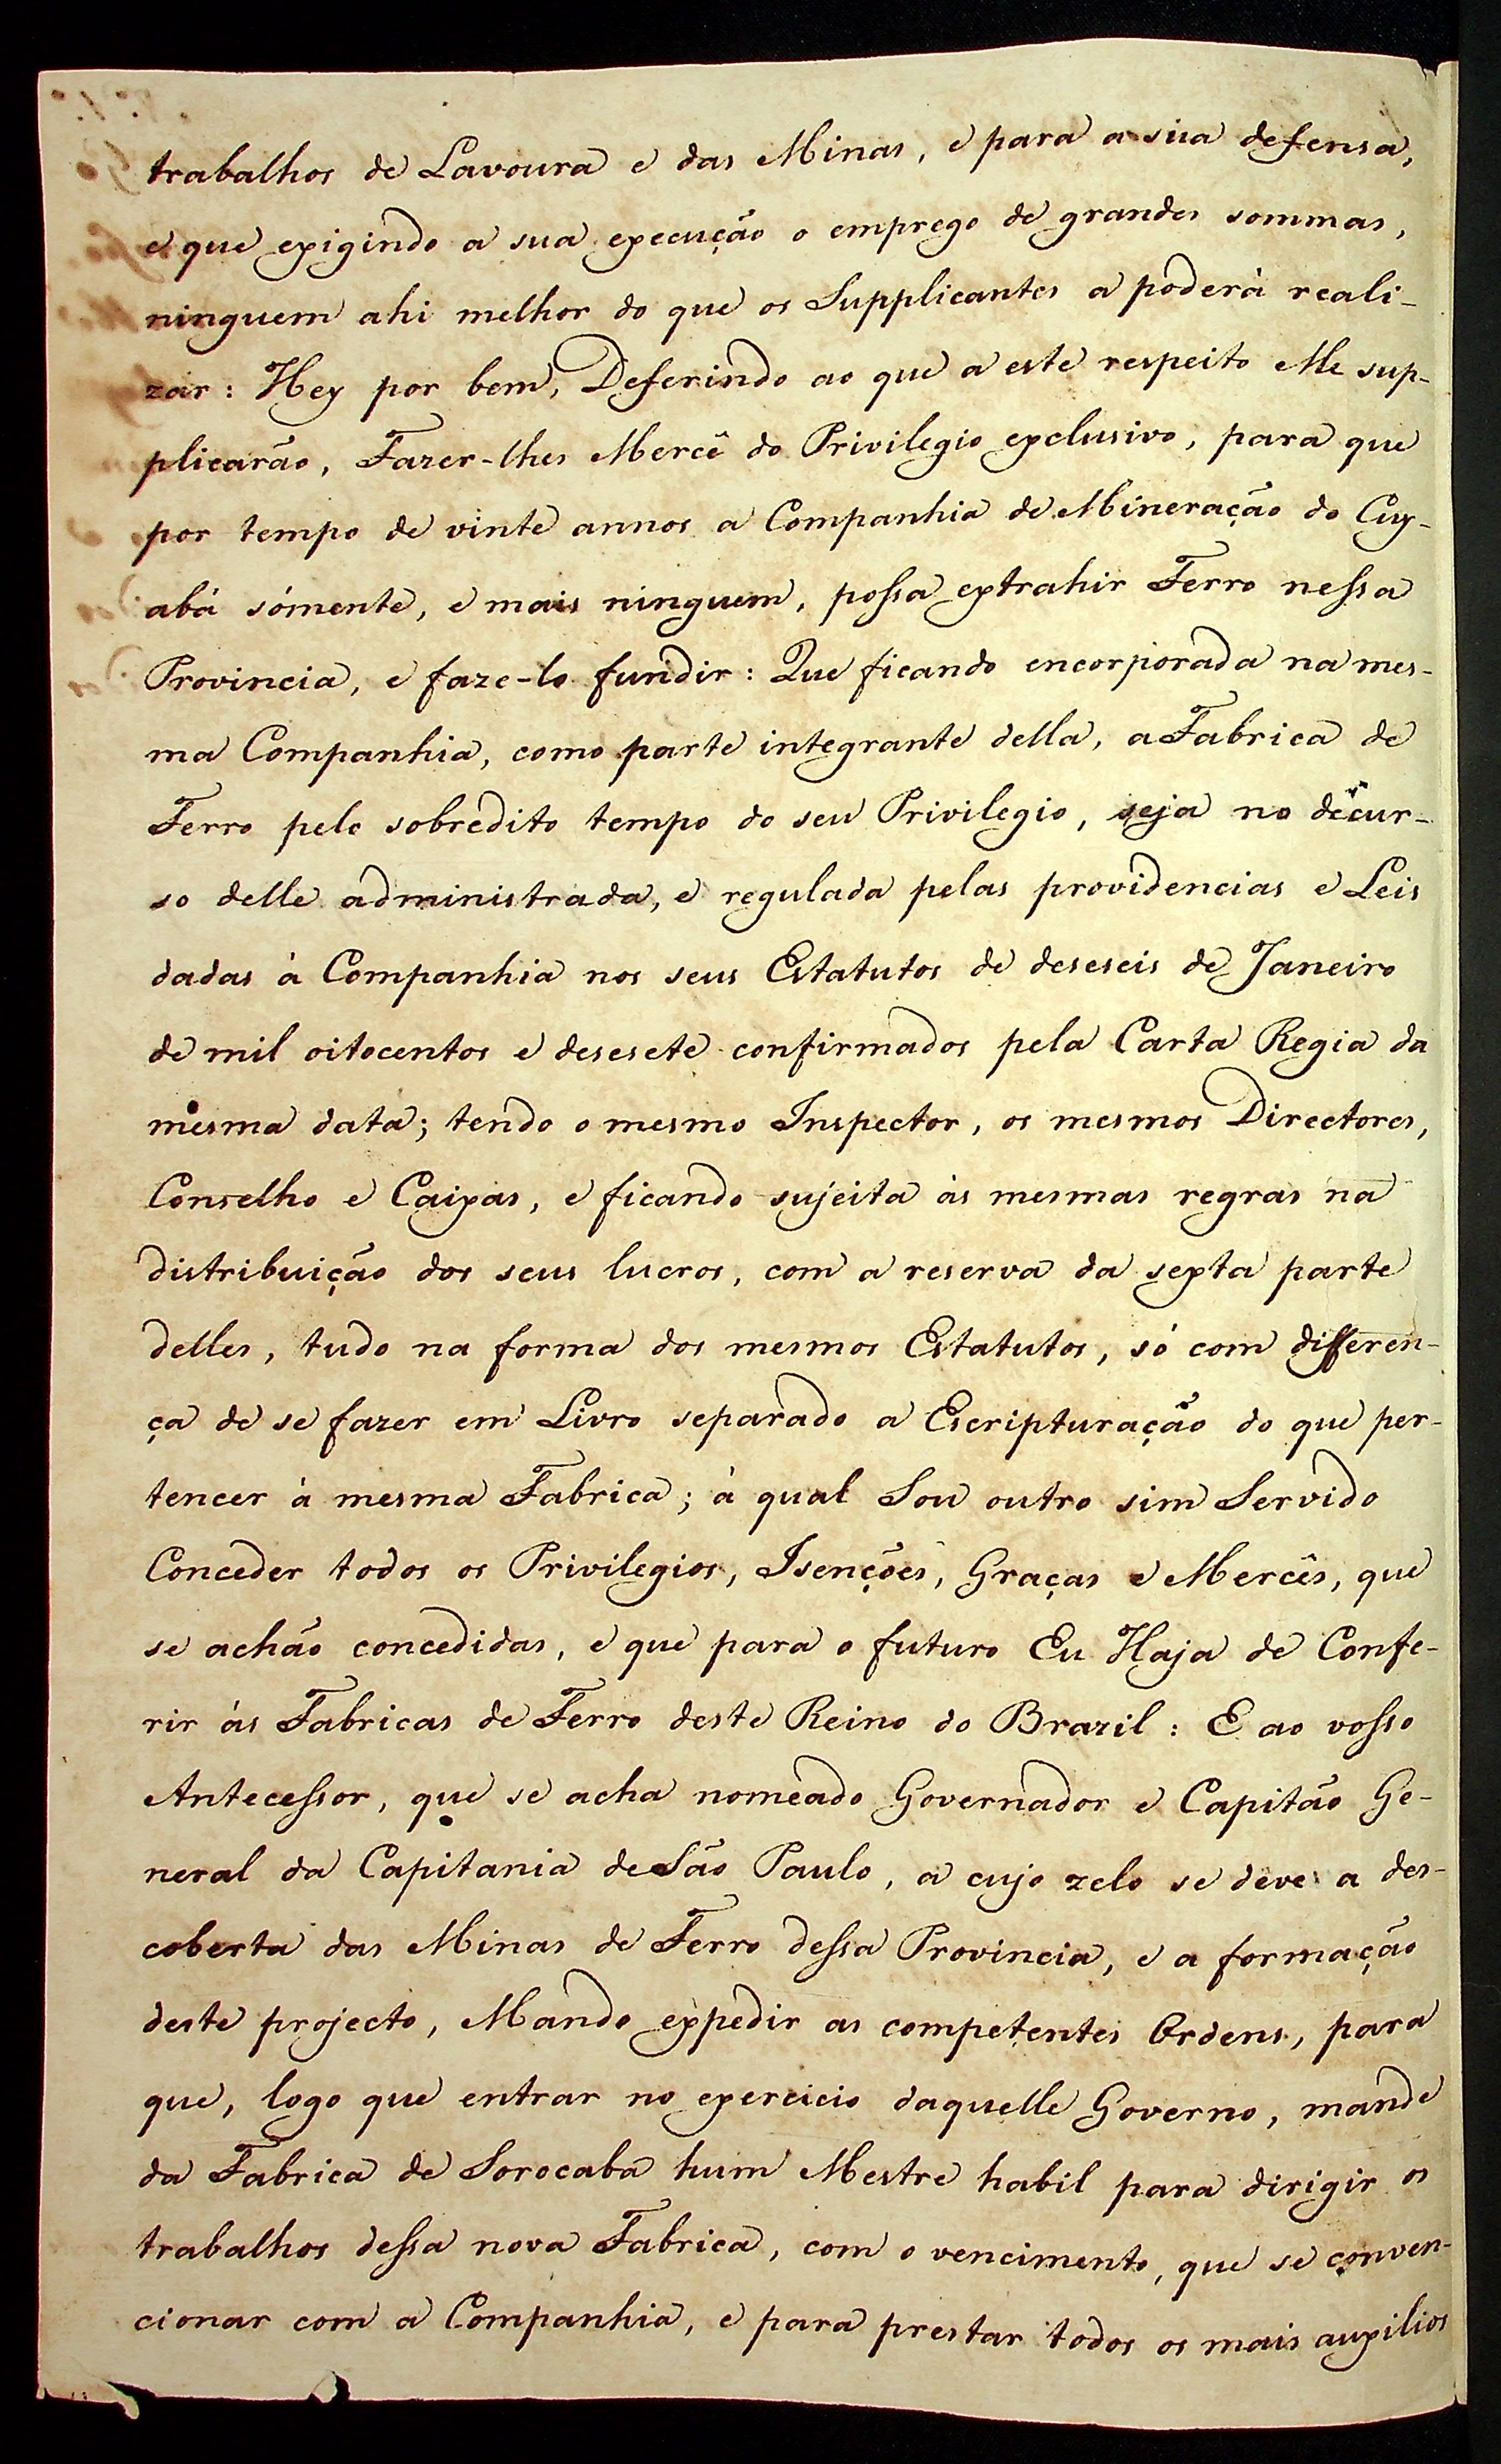 trabalhos de Lavoura e das Minas, e para a sua defensa,
e que exigindo a sua execução o emprego de grandes sommas,
ninguem ahi melhor do que os Supplicantes a poderà reali-
zar: Hey por bem, Deferindo ao que a este respeito Me sup-
plicarão, Fazer-lhes Mercê do Privilegio exclusivo, para que
por tempo de vinte annos a Companhia de Mineração do Cuy-
abá sómente, e mais ninguem, possa extrahir Ferro nessa
Provincia, e faze-lo fundir: Que ficando encorporada na mes-
ma Companhia, como parte integrante della, a Fabrica de
Ferro pelo sobredito tempo do seu Privilegio, seja no decur-
so delle administrada, e regulada pelas providencias e Leis
dadas à Companhia nos seus Estatutos de deseseis de Janeiro
de mil oitocentos e desesete confirmados pela Carta Regia da
mesma data; tendo o mesmo Inspector, os mesmos Directores,
Conselho e Caixas, e ficando sujeita às mesmas regras na
distribuição dos seus lucros, com a reserva da sexta parte
delles, tudo na forma dos mesmos Estatutos, só com differen-
ça de se fazer em Livro separado a Escripturação do que per-
tencer à mesma Fabrica; à qual Sou outro sim Servido
Conceder todos os Privilegios, Isenções, Graças e Mercês, que
se achão concedidas, e que para o futuro Eu Haja de Confe-
rir às Fabricas de Ferro deste Reino do Brazil: E ao vosso
Antecessor, que se acha nomeado Governador e Capitão Ge-
neral da Capitania de São Paulo, a cujo zelo se deve a des-
coberta das Minas de Ferro dessa Provincia, e a formação
deste projecto, Mando expedir as competentes Ordens, para
que, logo que entrar no exercicio daquelle Governo, mande
da Fabrica de Sorocaba hum Mestre habil para dirigir os
trabalhos dessa nova Fabrica, com o vencimento, que se conven-
cionar com a Companhia, e para prestar todos os mais auxilios